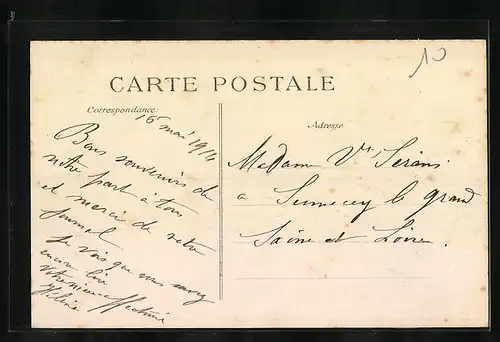 10
CARTE POSTALE
Correspondance:
16 mai 1916
Bons souvenirs de
notre part à tous
et merci de votre
journal
Je vois que vous savez
encore lire
Votre nièce affectionnée
Hélène
Adresse
Madame Vve
à Sennecey le grand
Saône et Loire